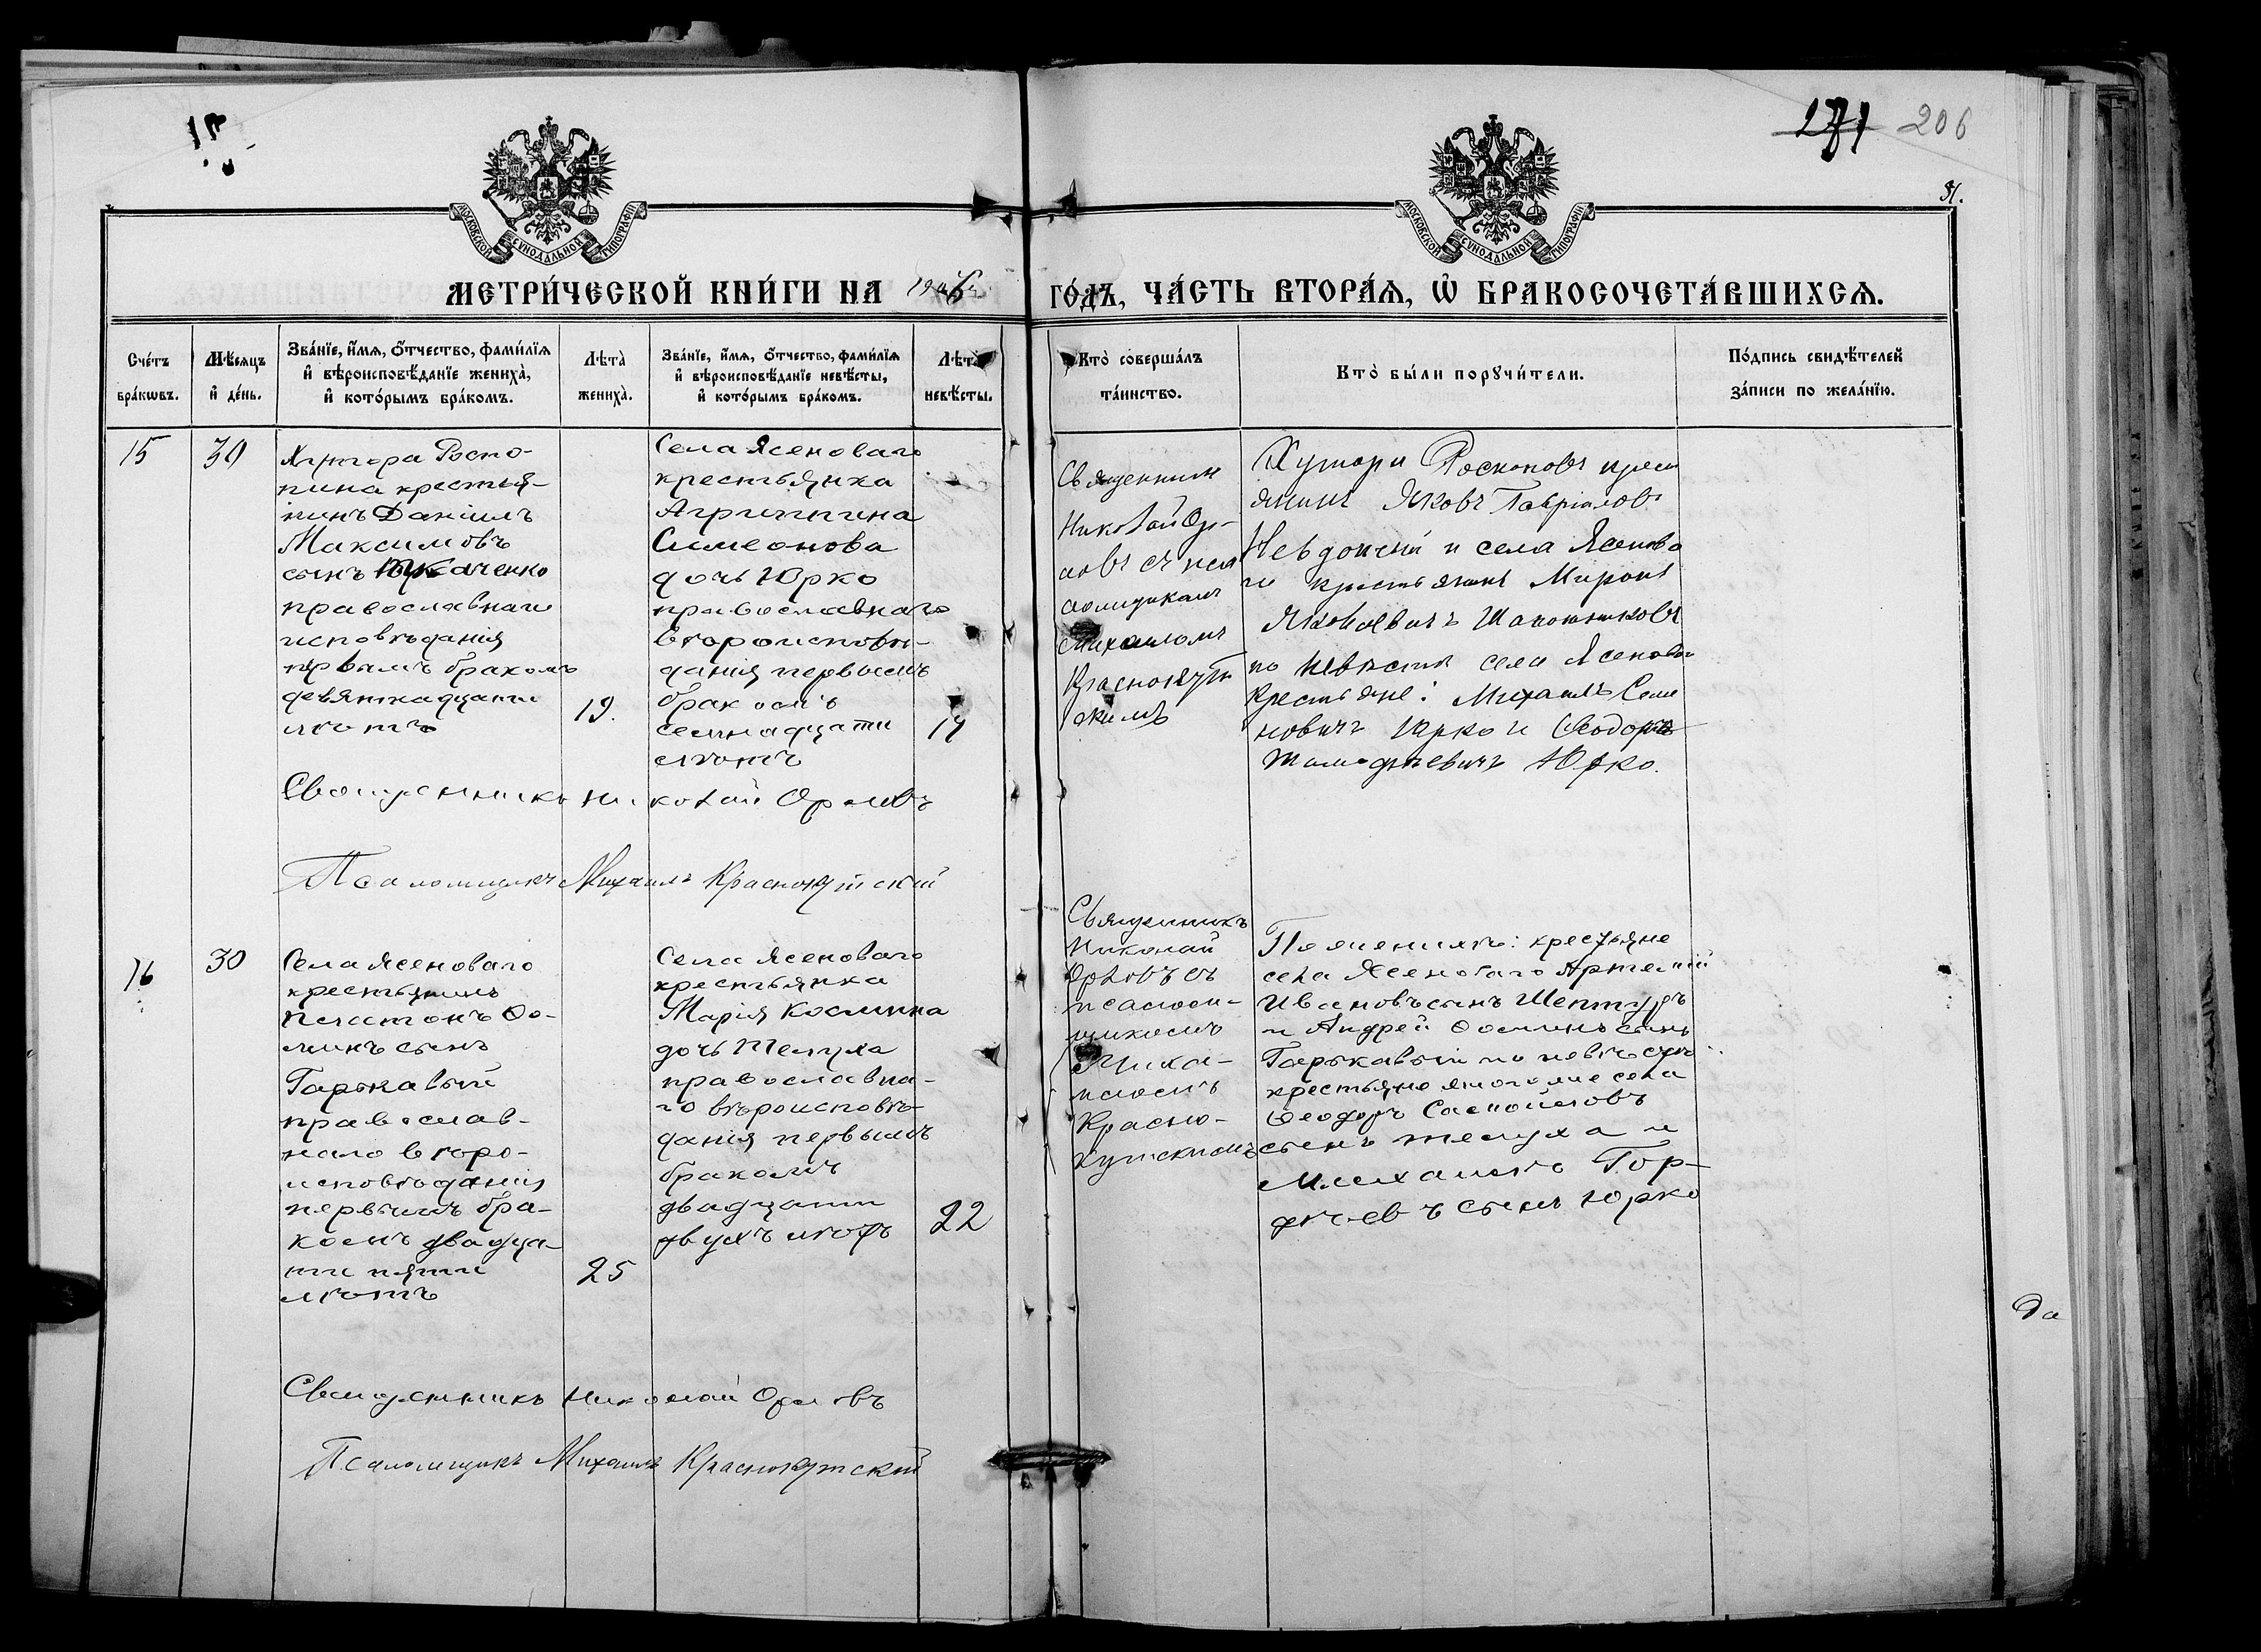 271 206
31.
МОСКОВСКОЙ СѴНОДАЛЬНОЙ ТИПОГРАФІИ
МОСКОВСКОЙ СѴНОДАЛЬНОЙ ТИПОГРАФІИ
МЕТРИ́ЧЕСКОЙ КНИ́ГИ НА
ГО́ДЪ, ЧА́СТЬ ВТОРА́Ѧ, Ѡ҆ БРАКОСОЧЕТА́ВШИХСѦ.
Сче́тъ
бра́кѡвъ.
Мѣ́сяцъ
и҆ де́нь.
Зва́нїе, и҆́мѧ, ѻ҆́тчество, фами́лїѧ
и҆ вѣроисповѣ́данїе жениха̀,
и҆ кото́рымъ бра́комъ.
Лѣта̀
жениха̀.
Зва́нїе, и҆́мѧ, ѻ҆́тчество, фами́лїѧ
и҆ вѣроисповѣ́данїе невѣ́сты,
и҆ кото́рымъ бра́комъ.
Лѣта̀
невѣ́сты.
Кто̀ соверша́лъ
та́инство.
Кто̀ бы́ли порꙋчи́тели.
По́дпись свидѣ́телей
за́писи по жела́нїю.
15
30
Хутора Роско-
пина крестья-
нинъ Даніилъ
Максимовъ
сынъ
православнаго
исповѣданія
первымъ бракомъ
девятнадцати
лѣтъ
19.
Села Ясеноваго
крестьянка
Агриппина
Симеонова
дочь Юрко
православнаго
вѣроисповѣ-
данія первымъ
бракомъ
семнадцати
лѣтъ
17
Священникъ
Николай Ор-
ловъ съ псал
ломщикомъ
Михаиломъ
Краснокут
скимъ
Хутора Роскоповъ крест
янинъ Яковъ Гавріилов
и села Ясенова
го крестьянинъ Миронъ
Яковлевичъ Шаповаловъ
по невѣстѣ села Ясенова
крестьяне: Михаилъ Семе
новичъ Юрко и Ѳеодоръ
Юрко.
Священникъ Николай Орловъ
Псаломщикъ Михаилъ Краснокутскій
16
30
Села Ясеноваго
крестьянинъ
Платонъ Ѳо-
минъ сынъ
Гаркавый
православ-
наго вѣро-
исповѣданія
первымъ бра-
комъ двадца-
ти пяти
лѣтъ
25
Села Ясеноваго
крестьянка
Марія Космина
дочь Шелуха
православна-
го вѣроисповѣ-
данія первымъ
бракомъ
двадцати
двухъ лѣтъ
22
Священникъ
Николай
Орловъ съ
псалом-
щикомъ
Миха-
иломъ
Красно-
кутскимъ
По женихѣ: крестьяне
села Ясеноваго Артемій
Ивановъ сынъ Шептуръ
и Андрей Ѳоминъ сынъ
Гаркавый по невѣстѣ
крестьяне того же села
Ѳеодоръ Самойловъ
сынъ Шелуха и
Михаилъ Гор-
дѣевъ сынъ Юрко
Да
Священникъ Николай Орловъ
Псаломщикъ Михаилъ Краснокутскій